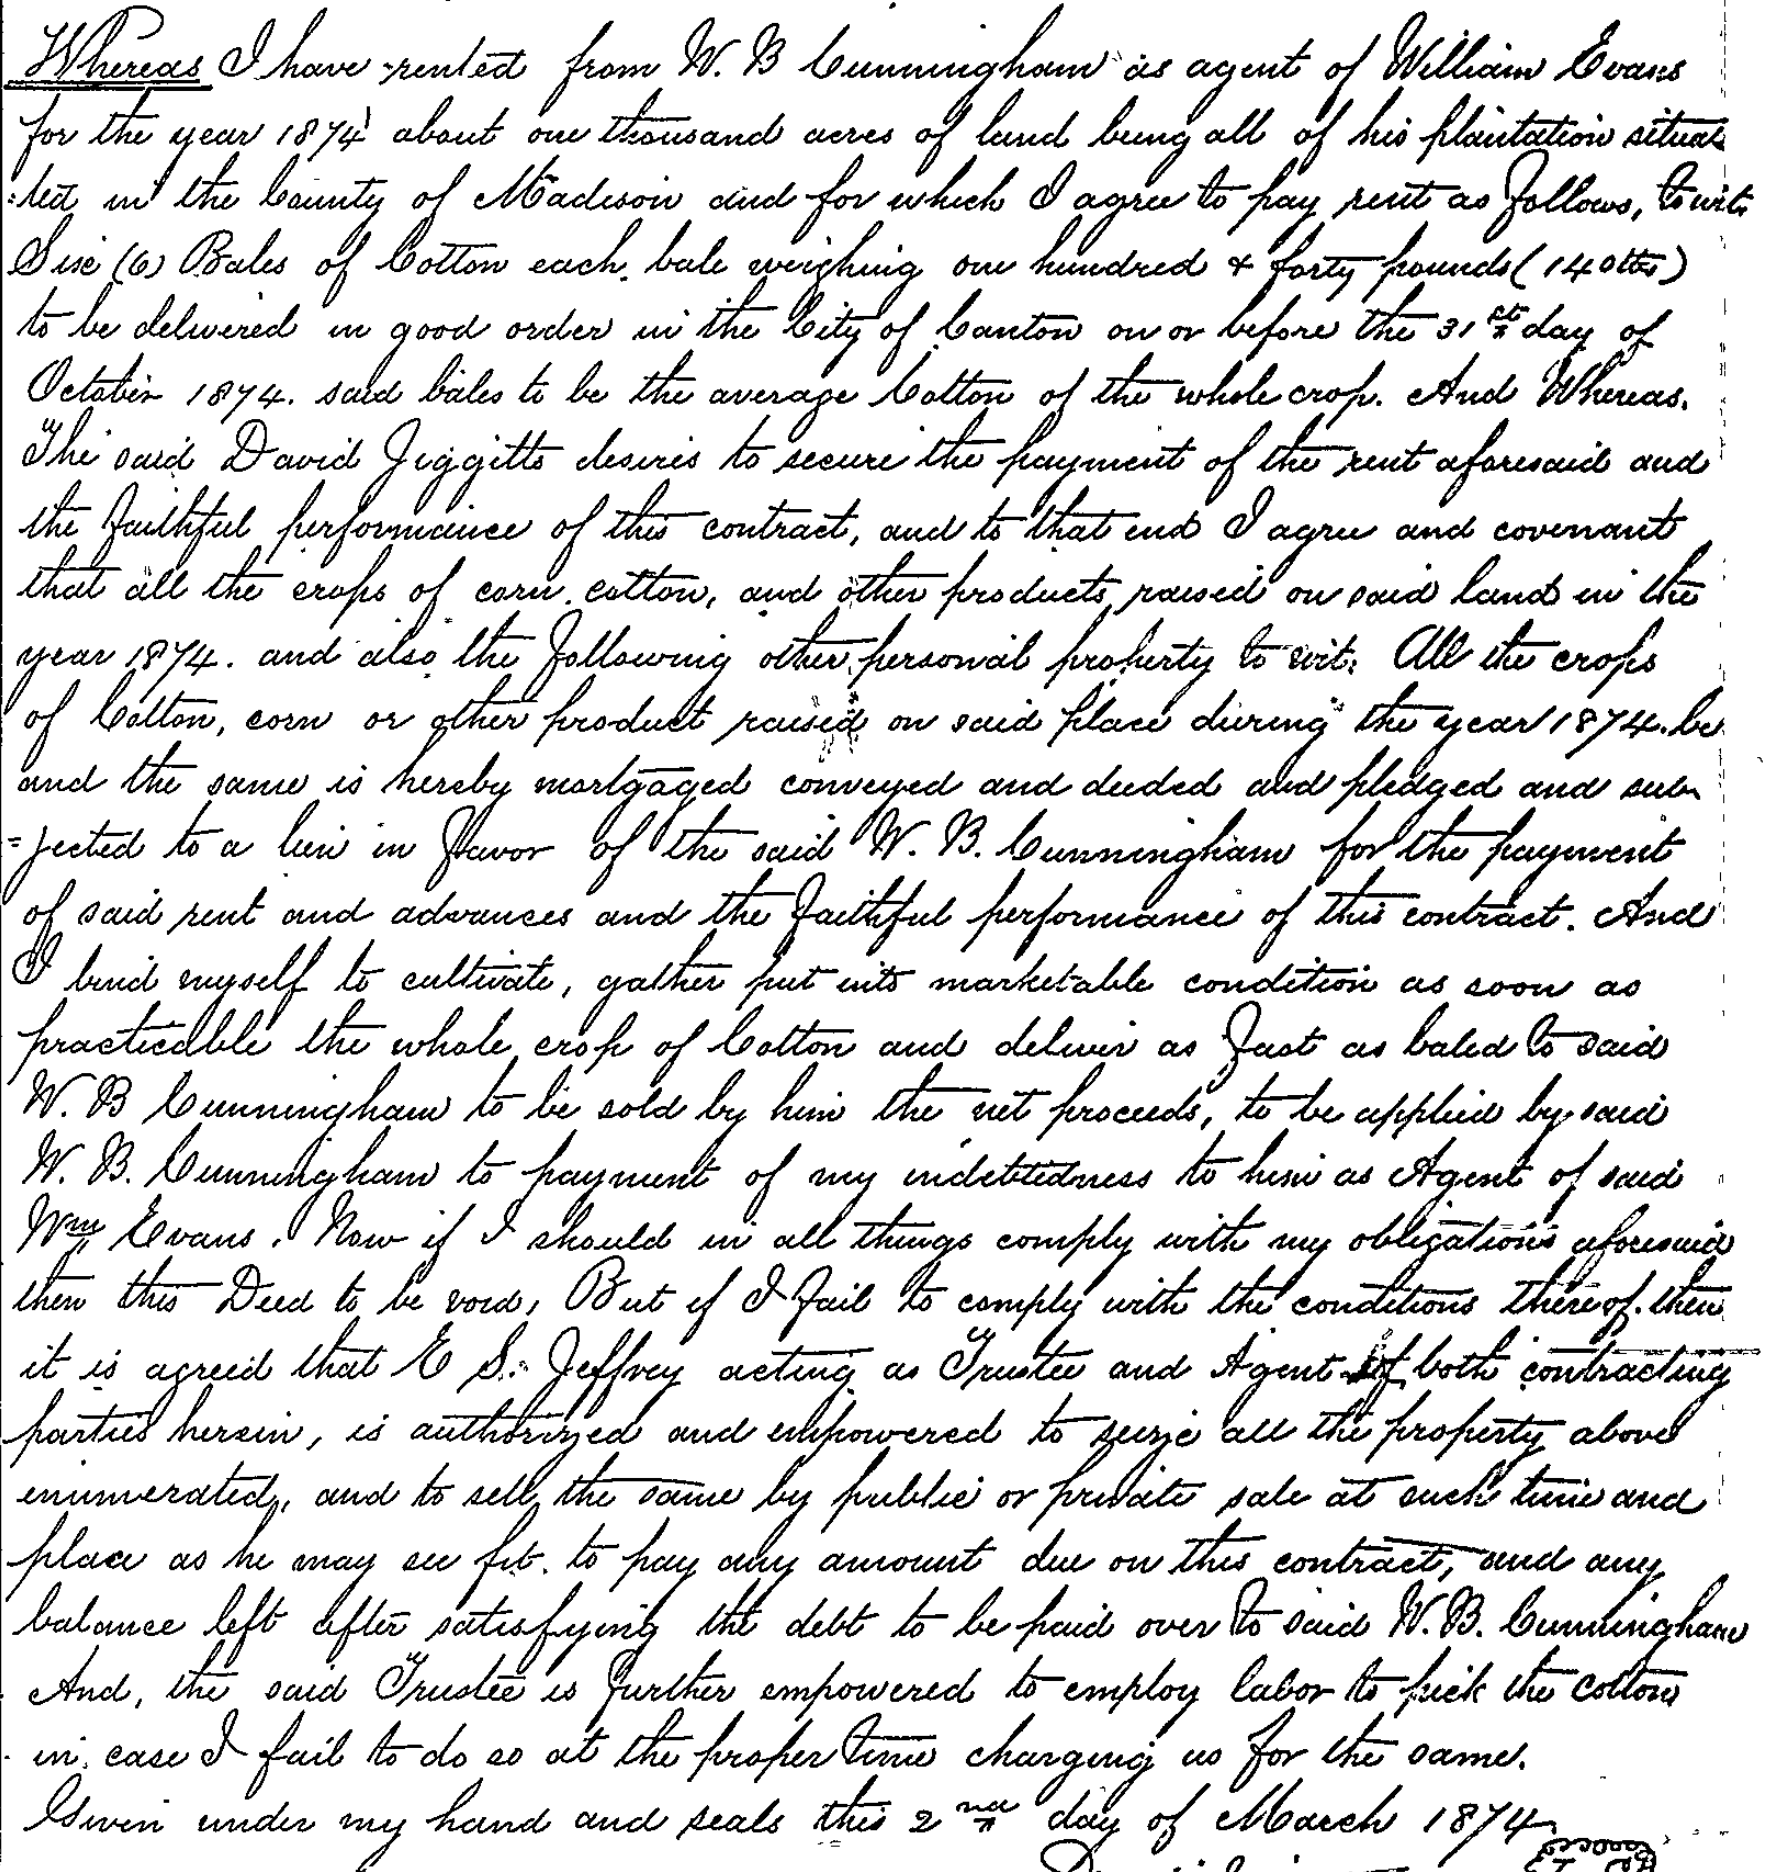 Whereas I have rented from W. B Cunningham as agent of William Evans
for the year 1874 about one thousand acres of land being all of his plantation situat
:ted in the County of Madison and for which I agree to pay rent as follows, to wit:
Six (6) Bales of Cotton each bale weighing one hundred & forty pounds (140 lbs)
to be delivered in good order in the City of Canton on or before the 31st day of
October 1874. said bales to be the average Cotton of the whole crop. And Whereas.
The said David Jiggitts desires to secure the payment of the rent aforesaid and
the faithful performance of this contract, and to that end I agree and covenant
that all the crops of corn, cotton, and other products raised on said land in the
year 1874. and also the following other personal property to wit: All the crops
of Cotton, corn or other product raised on said place during the year 1874. be
and the same is hereby mortgaged conveyed and deeded and pledged and sub
=jected to a lien in favor of the said W. B. Cunningham for the payment
of said rent and advances and the faithful performance of this contract. And
I bind myself to cultivate, gather put into marketable condition as soon as
practicable the whole crop of Cotton and deliver as fast as baled to said
W. B Cunningham to be sold by him the net proceeds, to be applied by said
W. B. Cunningham to payment of my indebtedness to him as Agent of said
Wm Evans. Now if I should in all things comply with my obligations aforesaid
then this Deed to be void, But if I fail to comply with the conditions thereof. then
it is agreed that E S. Jeffrey acting as Trustee and Agent of both contracting
parties herein, is authorized and empowered to seize all the property above
enumerated, and to sell the same by public or private sale at such time and
place as he may see fit. to pay any amount due on this contract, and any
balance left after satisfying the debt to be paid over to said W. B. Cunningham
And, the said Trustee is further empowered to employ labor to pick the cotton
in case I fail to do so at the proper time charging us for the same.
Given under my hand and seals this 2nd day of March 1874